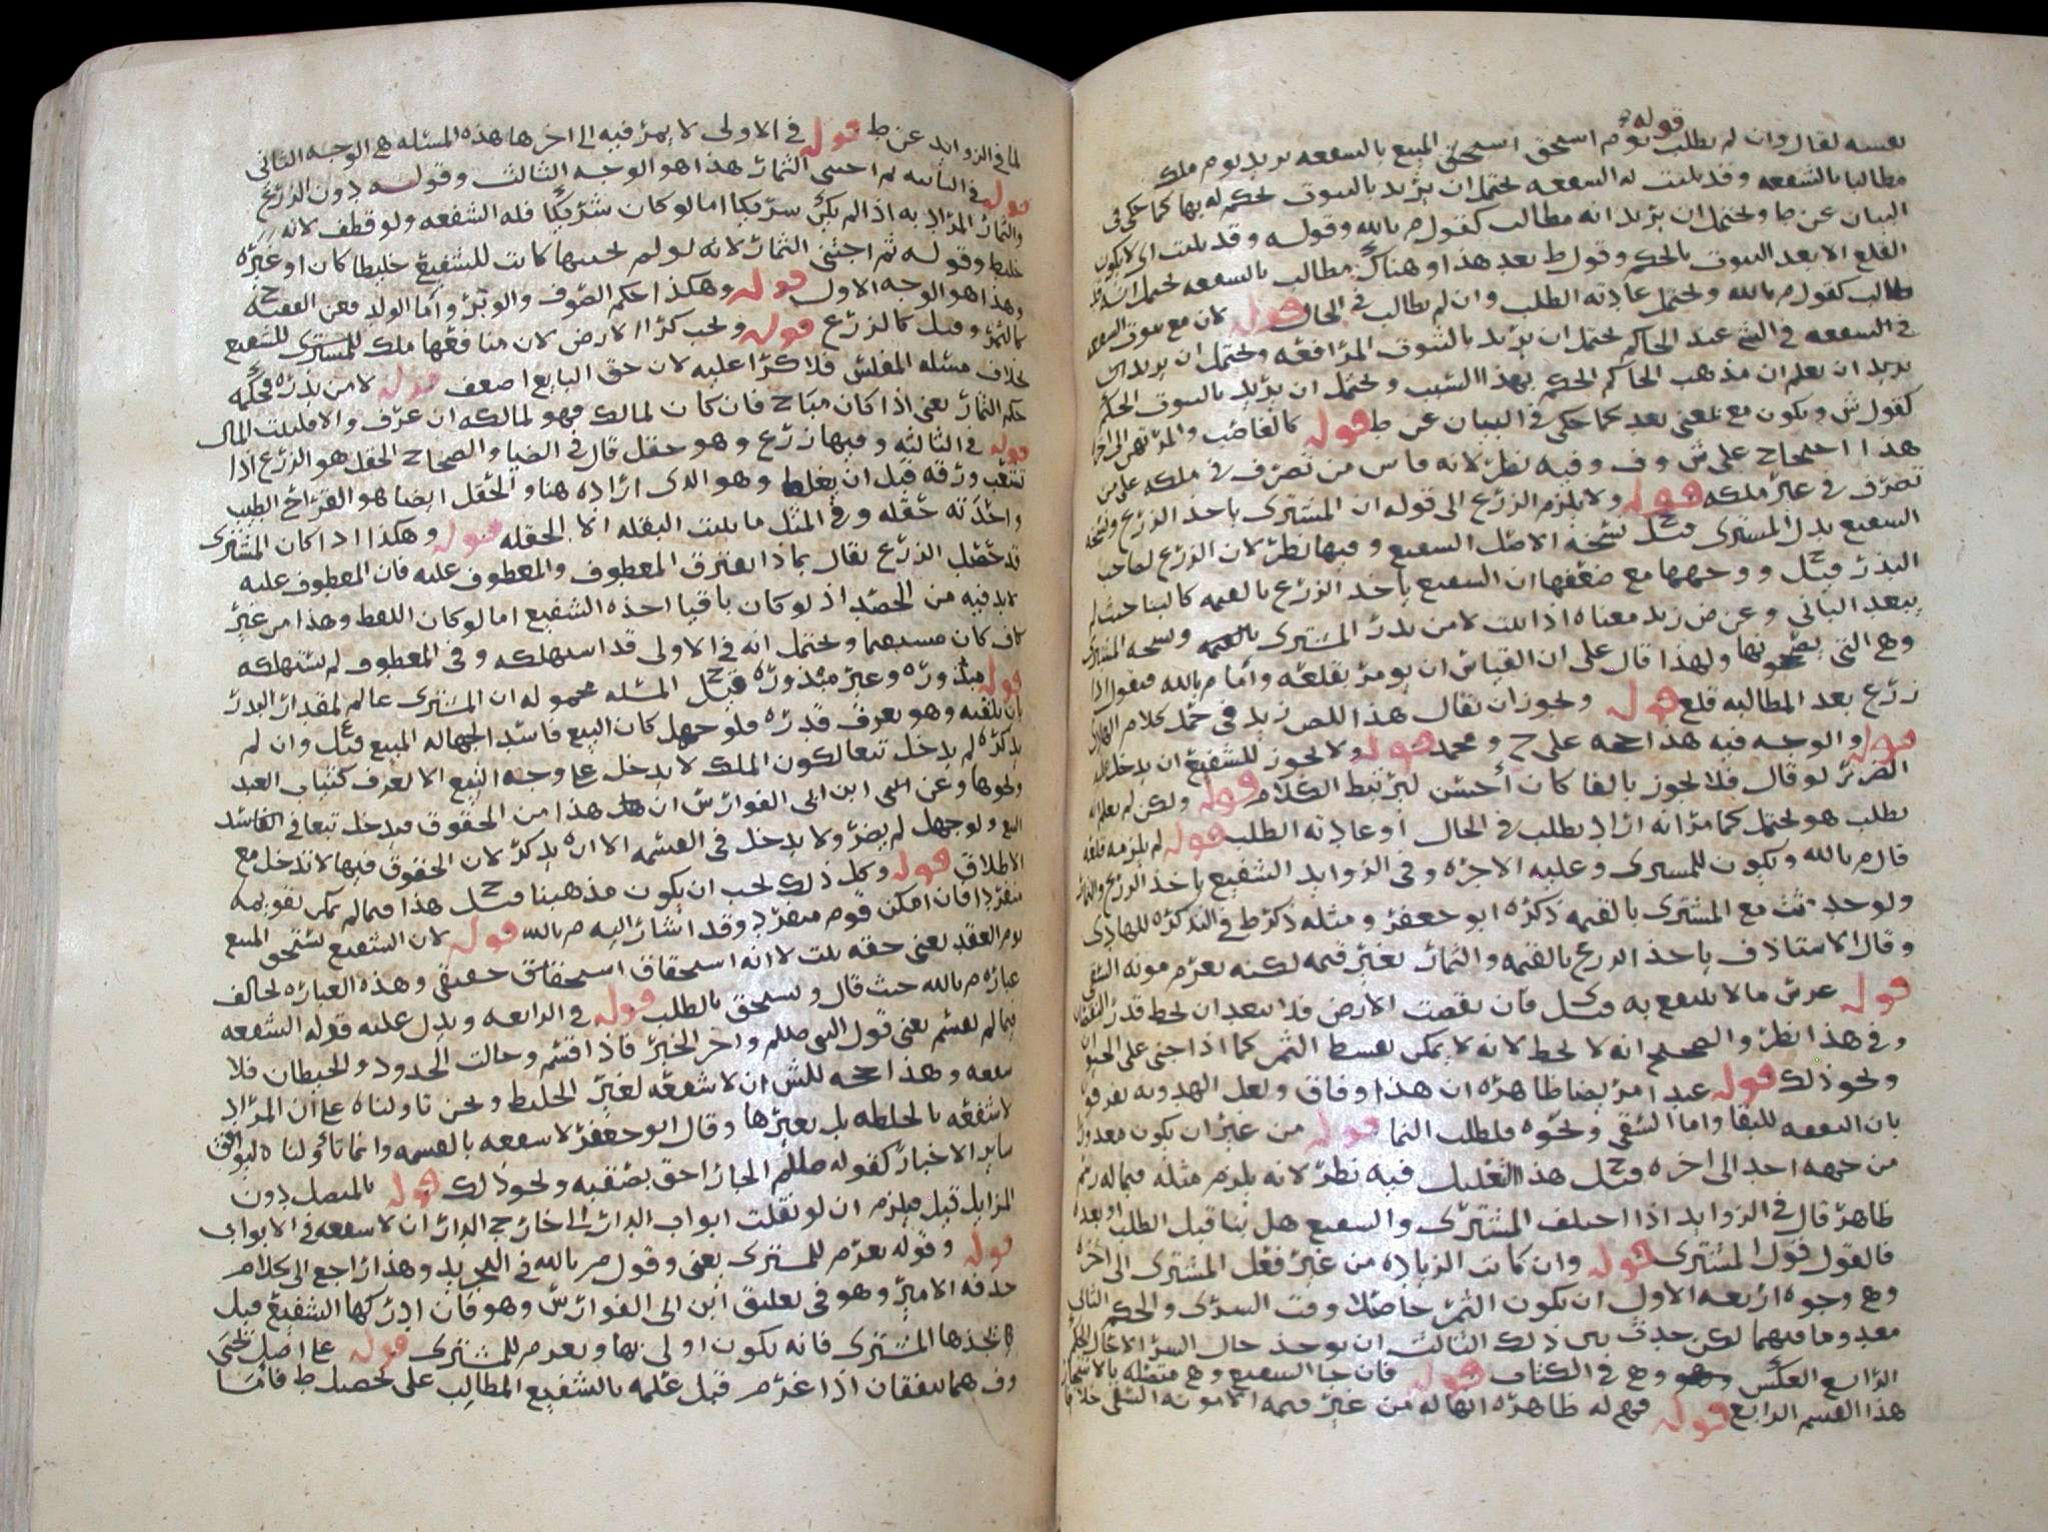 قوله
نفسه لقال وان لم يطلب يوم استحق استحق المبيع بالشفعه يريد يوم ملك
مطالبا بالشفعه وقد بلت له الشفعه يحتمل ان يريد بالثبوت بحكم له بها كما حكى في
البيان عن ط ويحتمل ان يريد انه مطالب كقول م بالله وقوله وقد بلت اي لا يكون
القلع الا بعد الثبوت بالحكم وقول ط بعد هذا وهناك مطالب بالشفعه يحتمل
طالب كقول م بالله ويحتمل عادته الطلب وان لم يطالب في الحال قوله لان مع ثبوت
في الشفعه في الشي عند الحاكم يحتمل ان يريد بالثبوت المرافعه ويحتمل ان يريد
يريد ان يعلم ان مذهب الحاكم الحكم بهذا السبب ويحتمل ان يريد بالثبوت الحكم
كقول ش ويكون مع بمعنى بعد كما حكى في البيان عن ط قوله كالغاصب والمرتهن
هذا احتجاج على ش وف وفيه نظر لانه قاس من تصرف في ملكه على من
تصرف في غير ملكه قوله ولا يلزم الزرع الى قوله ان المشترى ياخذ الزرع
الشفيع بدل المشترى قيل نسخه الاصل الشفيع وفيها نظر لان الزرع لصاحب
البذر قيل ووجهها مع ضعفها ان الشفيع ياخذ الزرع بالقيمه كالبنا حيث لم
يتعد الباني وعن ض زيد معناه اذا بلت لا من بذر المشترى بالقيمه ونسخه
وهي التي يصححونها ولهذا قال على ان القياس ان يومر بقلعه واما م بالله فيقول اذا
زرع بعد المطالبه قلع قوله ويجوز ان يقال هذا للض زيد في حمل كلام
قوله والوجه فيه هذا حجه على ح ومحمد قوله ولا يجوز للشفيع ان يدخل
الضرر لو قال فلا يجوز بالفا كان احسن ليرتبط الكلام قوله ولكن لم يعلم انه
يطلب هو يحتمل كما مر انه اراد يطلب في الحال او عادته الطلب قوله لم يلزمه قلعه
قال م بالله ويكون للمشترى وعليه الاجره وفي الزوايد الشفيع ياخذ الزرع والثمار
ولو حدثت مع المشترى بالقيمه ذكره ابو جعفر ومثله ذكر ط في التذكره للهادى
وقال الاستاذ ف ياخذ الزرع بالقيمه والثمار بغير قيمه لكنه يغرم مونه السقي
قوله غرس ما لا ينتفع به قيل فان نقصت الارض فلا يبعد ان يحط قدر النقصان
وفي هذا نظر والصحيح انه لا يحط لانه لا يمكن تقسيط الثمن كما اذا جنى على الحيوان
ونحو ذلك قوله عبدا مريضا ظاهره ان هذا وفاق ولعل الهدويه يفرقون
بان النفقه للبقا واما السقي ونحوه فلطلب النما قوله من غير ان يكون معدودا
من جهه احد الى اخره قيل هذا التعليل فيه نظر لانه يلزم مثله فيما له رسم
ظاهر قال في الزوايد اذا اختلف المشترى والشفيع هل بنا قبل الطلب او بعده
فالقول قول المشترى قوله وان كانت الزياده من غير فعل المشترى الى اخره
وهي وجوه اربعه الاول ان يكون الثمر حاصلا وقت الشرى والحكم الثاني
معدوما فيهما لكن حدث بين ذلك الثالث ان يوجد حال الشرا لا حال الحكم
الرابع العكس وهي في الكتاب قوله فان جا الشفيع وهي متصله بالاشجار
هذا القسم الرابع قوله فهي له ظاهره انها له من غير قيمه الا مونه السقي خلاف
لما في الزوايد عن ط قوله في الاولى لا يمر فيه الى اخرها هذه المسئله هي الوجه الثاني
قوله في الثانيه ثم اجتنى الثمار هذا هو الوجه الثالث وقوله دون الزرع
والثمار المراد به اذا لم يكن شريكا اما لو كان شريكا فله الشفعه ولو قطف لانه
خليط وقوله ثم اجتنى الثمار لانه لو لم يجنها كانت للشفيع خليطا كان او غيره
وهذا هو الوجه الاول قوله وهكذا حكم الصوف والوبر واما الولد فعن الفقيه ح
كالثمر وقيل كالزرع قوله ويجب كرا الارض لان منافعها ملك للمشترى للشفيع
بخلاف مسئله المفلس فلا كرا عليه لان حق البايع اضعف قوله لا من بذره فحكمه
حكم الثمار يعني اذا كان مباح فان كان لمالك فهو لمالكه ان عرف والا فلبيت المال
قوله في الثالثه وفيها زرع وهو حقل قال في الضيا والصحاح الحقل هو الزرع اذا
تشعب ورقه قبل ان يغلظ وهو الذى اراده هنا والحقل ايضا هو القراح الطيب
واحدته حقله وفي المثل ما ينبت البقله الا الحقله قوله وهكذا اذا كان المشترى
قد حصد الزرع يقال بماذا افترق المعطوف والمعطوف عليه فان المعطوف عليه
لا بد فيه من الحصد اذ لو كان باقيا اخذه الشفيع اما لو كان اللفظ وهذا من غير
كاف كان مستقيما ويحتمل انه في الاولى قد استهلكه وفي المعطوف لم يستهلكه
قوله مبذوره وغير مبذوره قيل ح المسئله محموله ان المشترى عالم لمقدار البذر
بان يلقيه وهو يعرف قدره فلو جهل كان البيع فاسد الجهاله المبيع قيل ع وان لم
يذكره لم يدخل تبعا لكون الملك لا يدخل على وجه التبع الا لعرف كثياب العبد
ونحوها وعن الشي ابن ابي الفوارس ان هذا من الحقوق فيدخل تبعا في الفاسد
البيع ولو جهل لم يضر ولا يدخل في القسمه الا ان يذكر لان الحقوق فيها لا تدخل مع
الاطلاق قوله وكل ذلك يجب ان يكون مذهبنا قيل ح هذا فيما لم يمكن تقويمه
منفردا فان امكن قوم منفرد وقد اشار اليه م بالله قوله لان الشفيع يستحق المبيع
يوم العقد يعني حقه بلت لا انه استحقاق استحقاق حقيقي وهذه العباره تخالف
عباره م بالله حيث قال ويستحق بالطلب قوله في الرابعه ويدل عليه قوله الشفعه
فيما لم يقسم يعني قول النبي صللم واخر الخبر فاذا قسم وحالت الحدود والحيطان فلا
شفعه وهذا حجه للش ان لا شفعه لغير الخليط ونحن تاولناه على ان المراد
لا شفعه بالخلطه بل بغيرها وقال ابو جعفر لا شفعه بالقسمه وانما تاولناه ليوافق
ساير الاخبار كقوله صللم الجار احق بصقبه ونحو ذلك قوله بالمتصل دون
المزايل قيل فيلزم ان لو نقلت ابواب الدار الى خارج الدار ان لا شفعه في الابواب
قوله وقوله يغرم للمشترى يعني وقول م بالله في التجريد وهذا راجع الى كلام
حذفه الامير وهو في تعليق ابن ابي الفوارس وهو فان ادركها الشفيع قبل
ان يجذها المشترى فانه يكون اولى بها ويغرم للمشترى قوله على اصل يحيى
وف هما يتفقان اذا غرم قبل علمه بالشفيع المطالب على تحصيل ط فاما